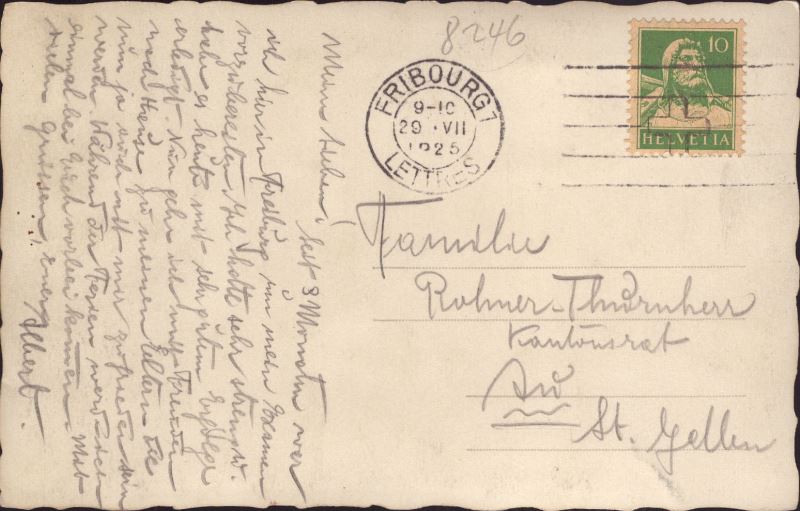 8246
FRIBOURG 1
9-10
29 · VII
1925
LETTRES
10
HELVETIA
Meine Lieben! Seit 3 Monaten war
ich hier in Freiburg um mein Examen
vorzubereiten. Ich hatte sehr streng u.
habe es heute mit sehr gutem Erfolg
erledigt. Nun gehe ich mit Freuden
nach Hause zu meinen Eltern die
nun ja auch mit mir zufrieden sein
werden. Während den Ferien werde ich
einmal bei Euch vorbei kommen. Mit
vielen Grüssen, Euer
Albert.
Familie
Rohner-Thurnherr
Kantonsrat
Au
St. Gallen